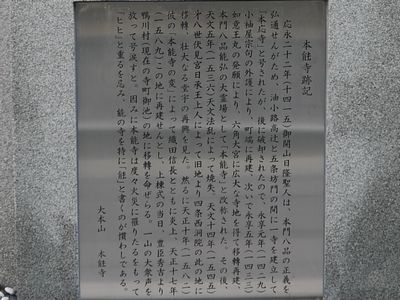 本能寺跡記
応永二十二年(一四一五)御開山日隆聖人は、本門八品の正義を
弘通せんがため、油小路高辻と五条坊門の間に一寺を建立して
「本応寺」と号されたが、後に破却されたので、永享元年(一四二九)
小袖屋宗句の外護により、町端に再建、次いで永享五年(一四三三)
如意王丸の発願により、六角大宮に広大な寺地を得て移転再建、
本門八品能弘の大霊場として、「本能寺」と改称された。その後、
天文五年(一五三六)天文法乱によって焼失、天文十四年(一五四五)
第八世伏見宮日承王上人によって旧地より四条西洞院の此の地に
移転、壮大なる堂宇の再興を見た。然るに天正十年(一五八二)
彼の「本能寺の変」によって織田信長とともに炎上、天正十七年
(一五八九)この地に再建せんとし、上棟式の当日、豊臣秀吉より
鴨川村(現在の寺町御池)の地に移転を命ぜらる。一山の大衆声を
放って号泣すと。因みに本能寺は度々火災に罹りたるをもって
「ヒヒ」と重るを忌み、能の寺を特に「䏻」と書くのが慣わしである。
大本山 本能寺